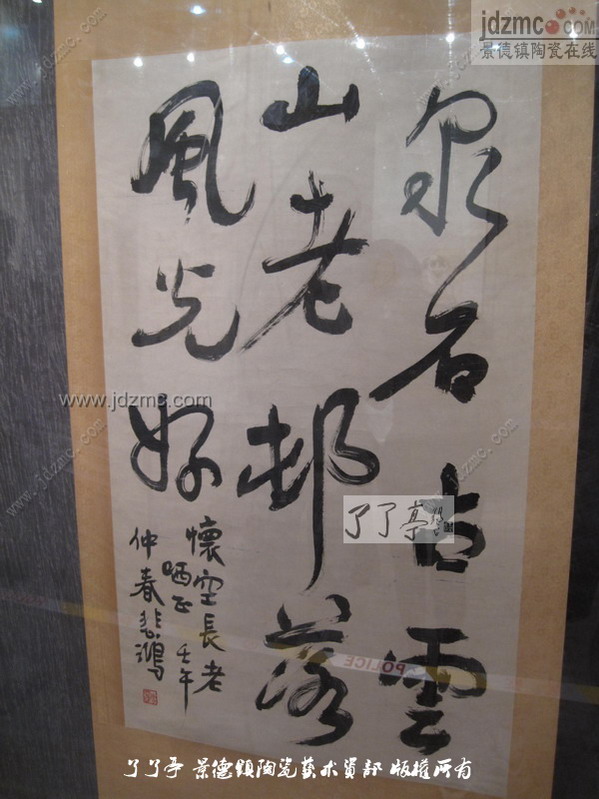 泉石古雲
山老邨落
風光好
懷空長老
哂正 壬午
仲春悲鴻
jdzmc.com
景德镇陶瓷在线
www.jdzmc.com
了了亭
POLICE
了了亭 景德镇陶瓷艺术资部 版權所有